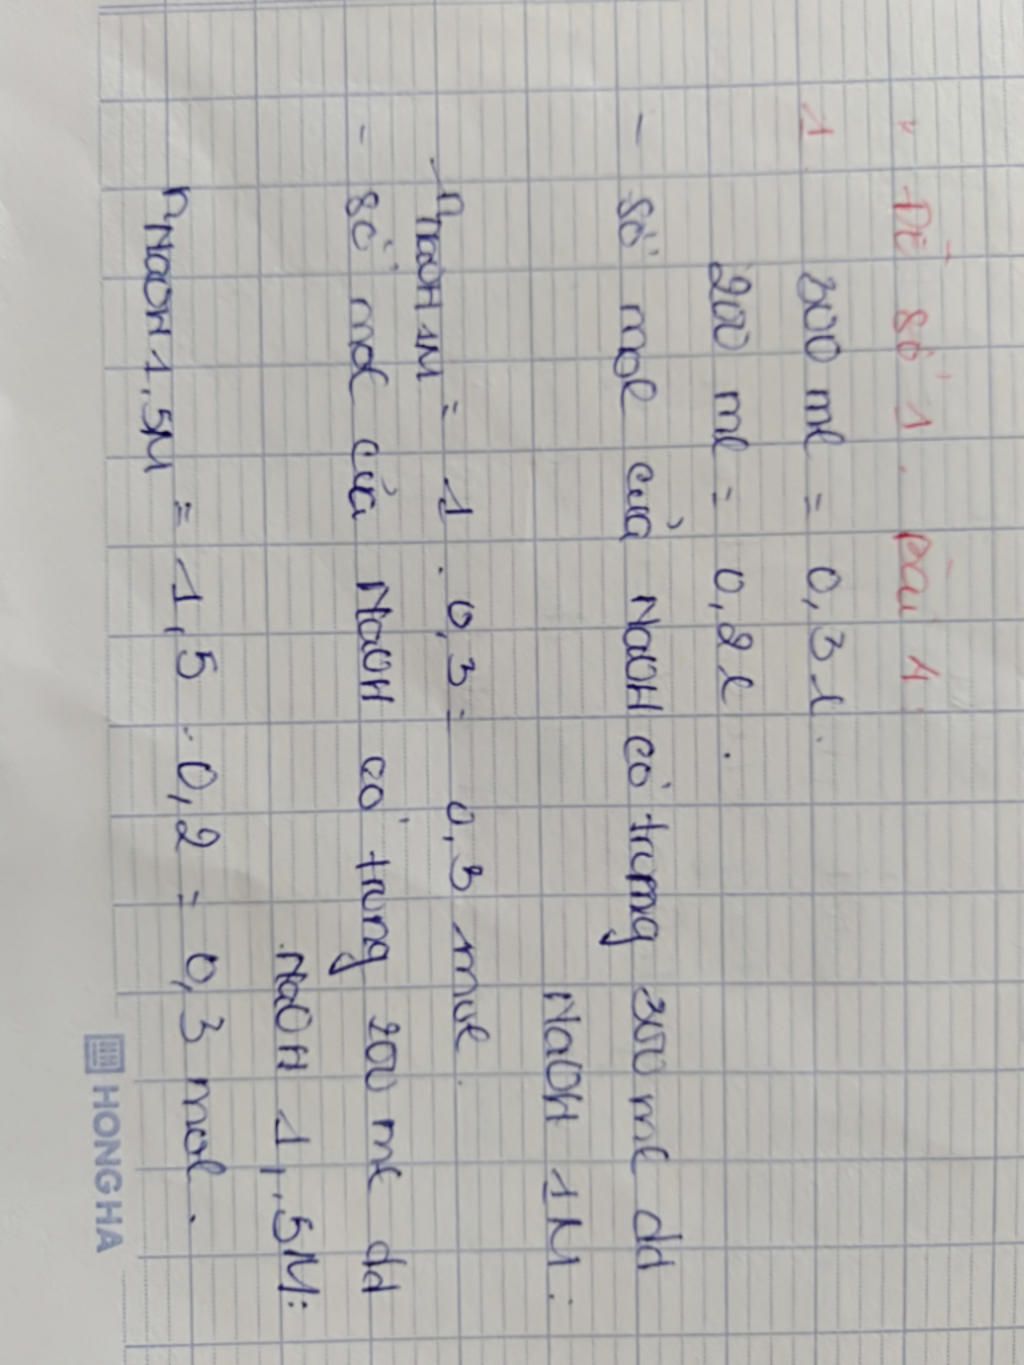 Đề số 1. Bài 1
1.
300 ml = 0,3 l.
200 ml = 0,2 l.
- Số mol của NaOH có trong 300 ml dd
NaOH 1M:
n NaOH 1M = 1 . 0,3 = 0,3 mol.
- Số mol của NaOH có trong 200 ml dd
NaOH 1,5M:
n NaOH 1,5M = 1,5 . 0,2 = 0,3 mol.
HONG HA